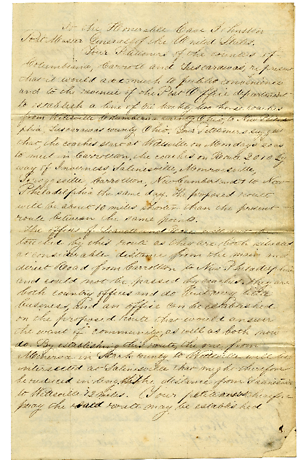 To the Honorable Cave Johnson
Post Master General of the United States
Your Petitioners of the counties of
Columbiana, Carroll and Tuscarawas, represent
that it would accommodate public convenience
and to the revenue of the Post Office department
to establish a line of two horse coaches
from Wellsville Columbiana county Ohio, to New Philadel
phia Tuscarawas county Ohio. Your petitioners suggest
that, the coaches start at Wellsville on Mondays so as
to meet in Carrollton, the coaches on Route
way by Inverness Salineville Monroeville,
Carrollton, New to New
Philadelphia the same day. The proposed route
will be about 10 miles shorter than the present
route between the same points.
The offices of and will not
by this route as they are both situated
at considerable distance from the main and
direct Road from Carrollton to New Philadelphia
and would not the present They are
both country offices and do but very little
business, And an office to be established
on the proposed route that would answer
the want of community, as well as both now
do. By establishing this route, the one from
in Stark county to Wellsville will be
intersected at Salineville that might therefore
be reduced in length the distance from Salineville
to Wellsville 22 miles. Your petitioners therefore
pray the said route may be established